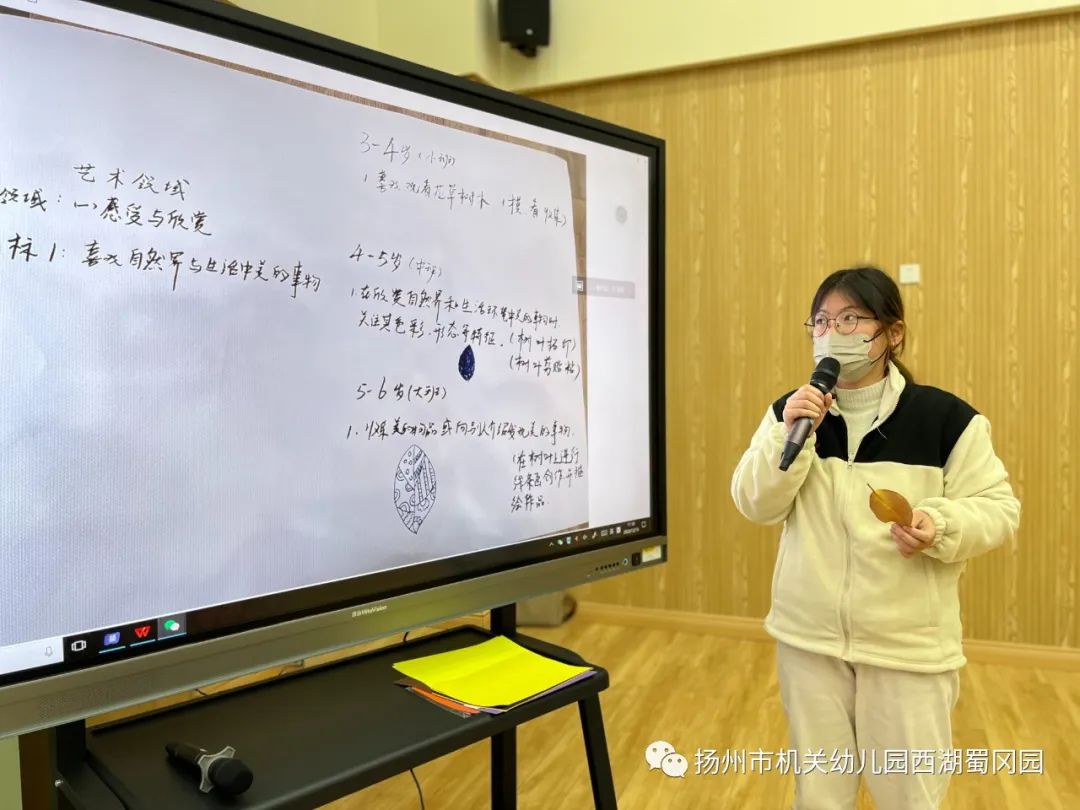 艺术领域
领域：(一)感受与欣赏
标1：喜欢自然界与生活中美的事物
3-4岁(小班)
1 喜欢观看花草树木 (摸、看、收集)
4-5岁(中班)
1.在欣赏自然界和生活环境中美的事物时
关注其色彩、形态等特征。(树叶拓印)
(树叶剪贴粘)
5-6岁(大班)
1.收集美的物品并向别人介绍发现美的事物.
(在树叶上进行
线条画创作并
绘作品.
扬州市机关幼儿园西湖蜀冈园